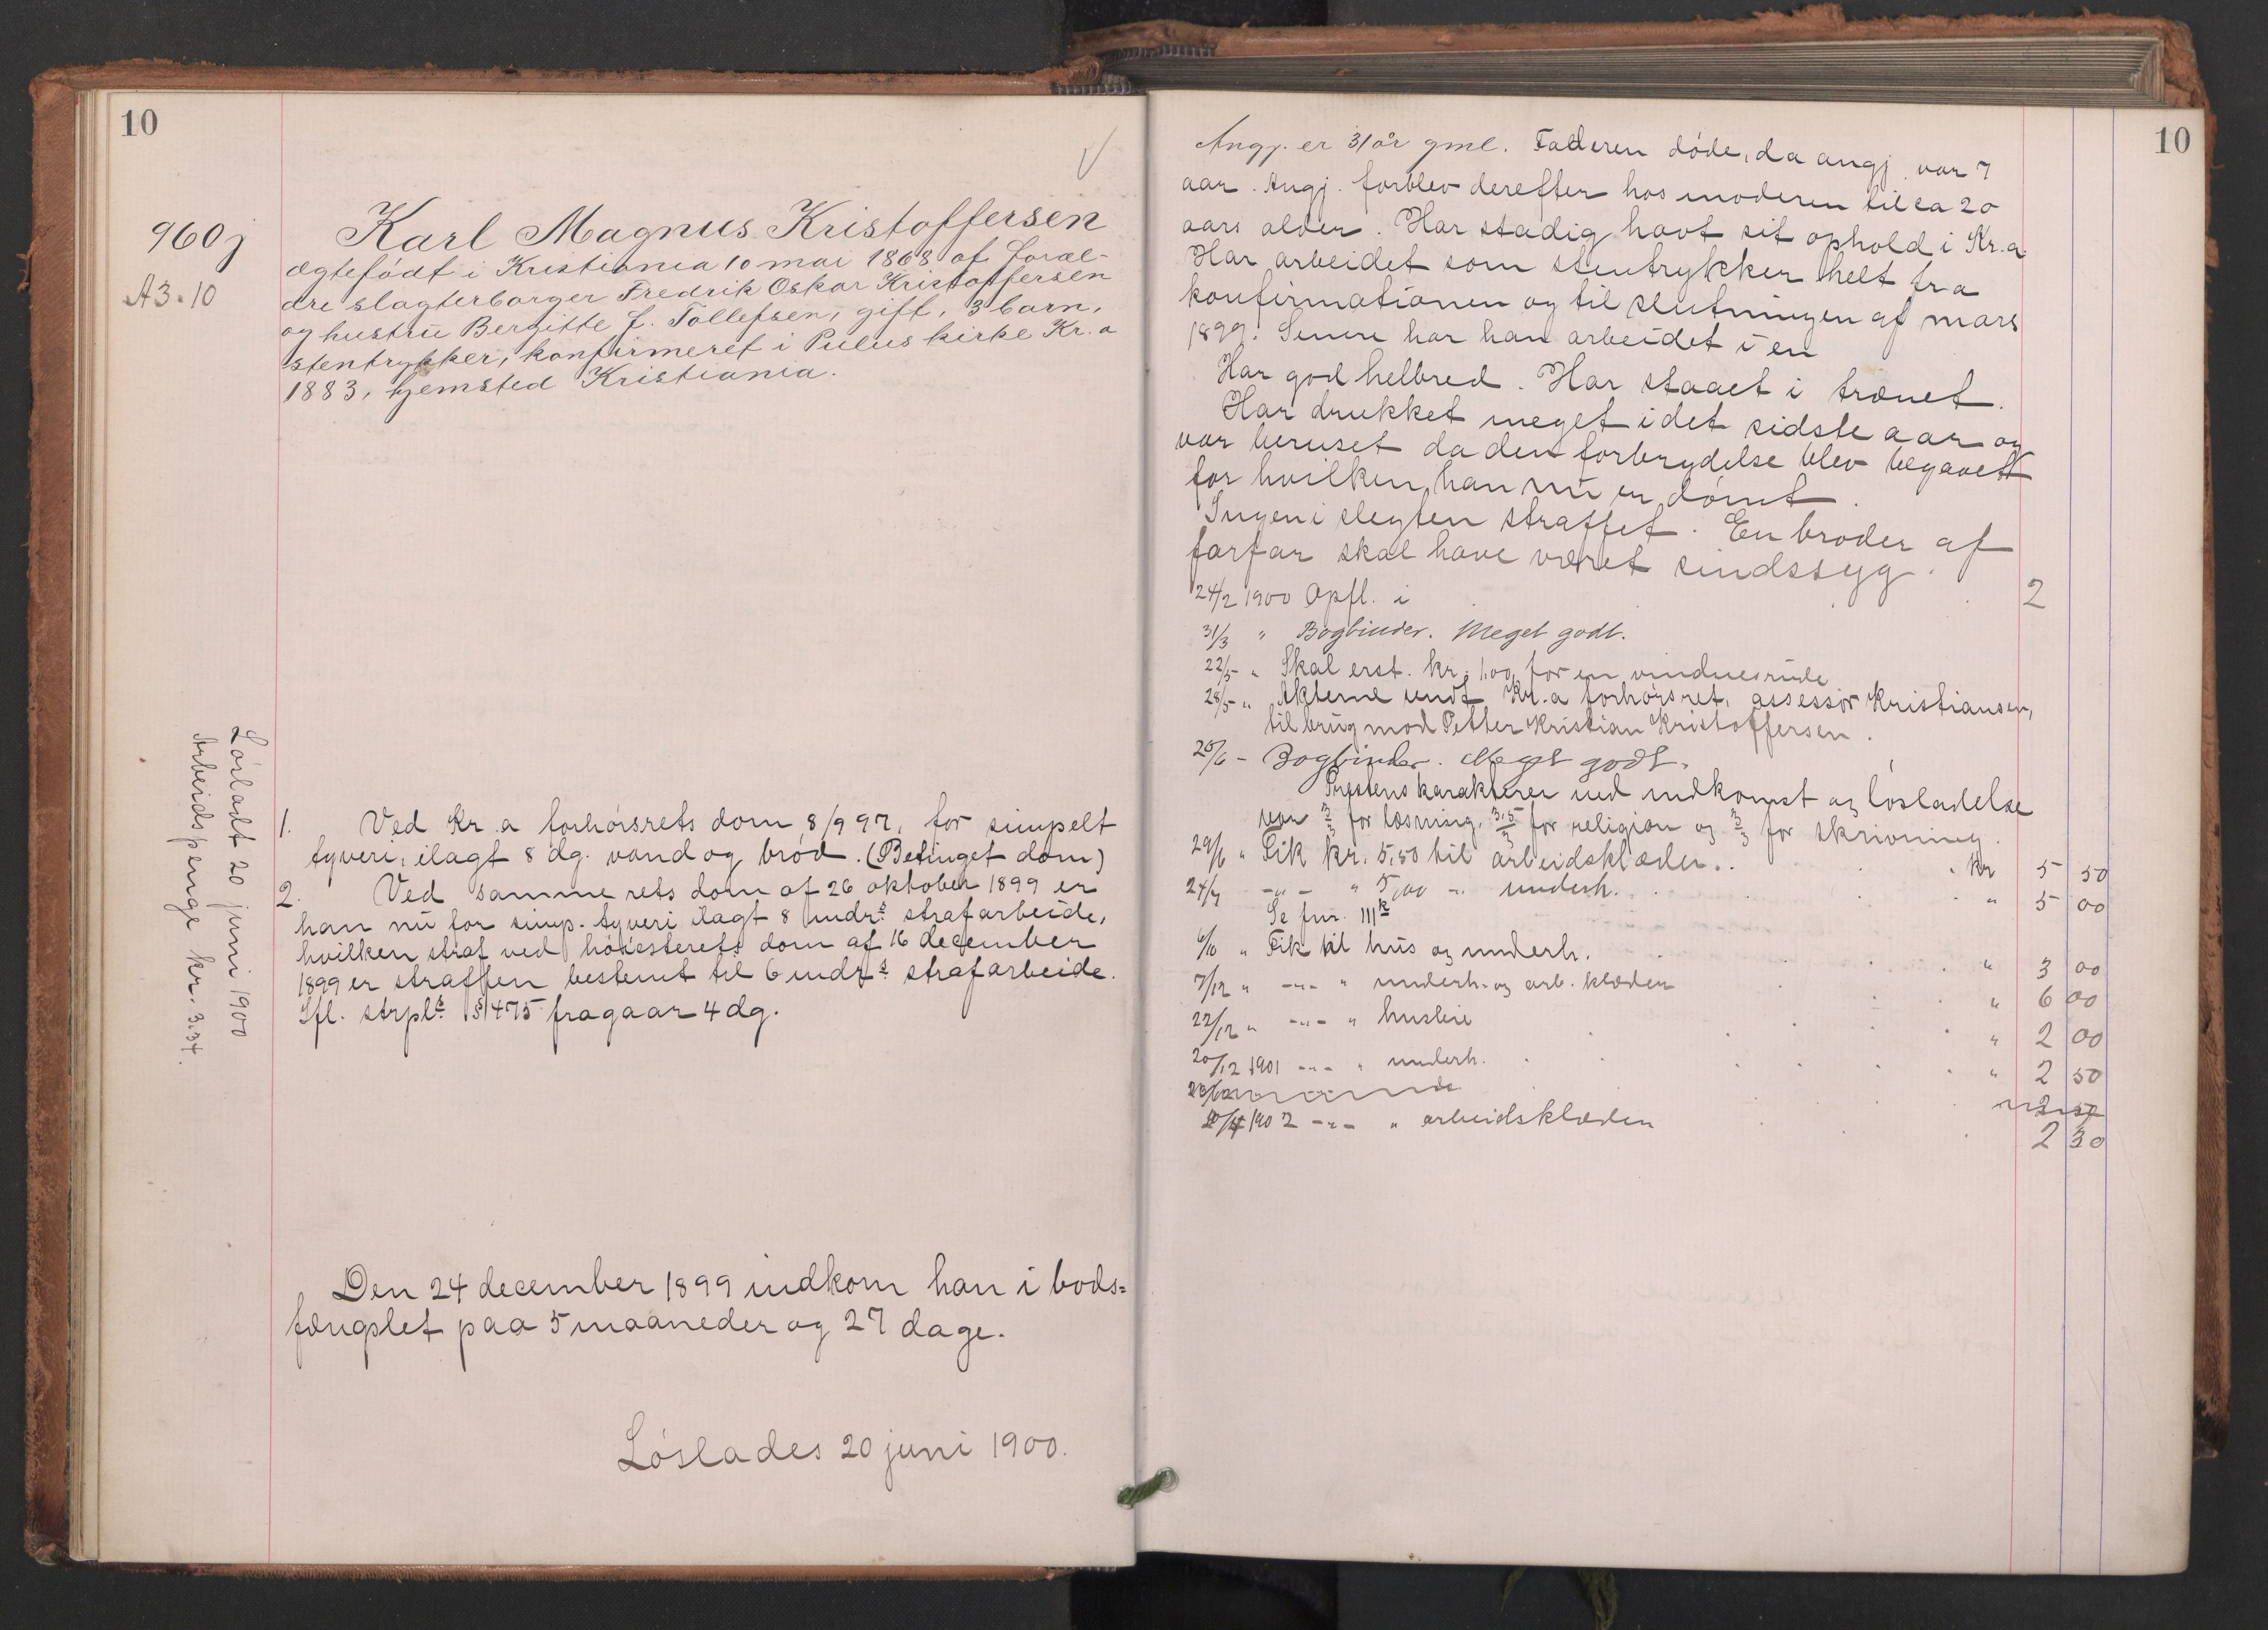 10
960 j
A3.10
Karl Magnus Kristoffersen
ægtefødt i Kristiania 10 mai 1868 af foræl-
dre slagterborger Fredrik Oskar Kristoffersen
og hustru Bergitte J. Tollefsen, gift, 3 barn,
stentrykker, konfirmeret i Pulus kirke Kr.a
1883, hjemsted Kristiania.
Løsladt 20 juni 1900
Arbeidspenge kr. 3.34.
1. Ved Kr.a forhørsrets dom 8/9 97, for simpelt
tyveri, ilagt 8 dg. vand og brød. (Betinget dom)
2. Ved samme rets dom af 26 oktober 1899 er
han nu for simp. tyveri ilagt 8 mdrs strafarbeide,
hvilken straf ved høiesterets dom af 16 december
1899 er straffen bestemt til 6 mdrs strafarbeide.
Ifl. strpl. § 475 fragaar 4 dg.
Den 24 december 1899 indkom han i bods=
fængslet paa 5 maaneder og 27 dage.
Løslades 20 juni 1900.
10
Angj. er 31 år gml. Faderen døde, da angj. var 7
aar. Angj. forblev derefter hos moderen til ca 20
aars alder. Har stadig havt sit ophold i Kr.a
Har arbeidet som stentrykker helt fra
konfirmationen og til slutningen af mars
1899. Senere har han arbeidet i en
Har god helbred. Har staaet i trænet.
Har drukket meget i det sidste aar og
var beruset da den forbrydelse blev begaaet
for hvilken han nu er dømt.
Ingen i slegten straffet. En broder af
farfar skal have været sindssyg.
24/2 1900 Opfl. i 2
31/3 " Bogbinder. Meget godt.
22/5 " Skal erst. kr. 1,00 for en vinduesrude
28/5 " Akterne sendt Kr.a forhørsret, assessor Kristiansen,
til brug mod Petter Kristian Kristoffersen.
20/6 - Bogbinder. Meget godt.
Prestens karakterer ved indkomst og løsladelse
var 3/3 for læsning, 3,5/3 for religion og 3/3 for skrivning.
29/6 " Fik kr. 5,50 til arbeidsklæder. . kr 5 50
24/7 -"- " 5,00 " underh. " 5 00
Se fnr. 111 k
6/10 " Fik til hus og underh. " 3 00
7/12 " -"- " underh. og arb. klæder " 6 00
22/12 " -"- " husleie " 2 00
20/12 1901 -"- " underh. " 2 50
2 50
20/4 1902 -"- " arbeidsklæder 2 30